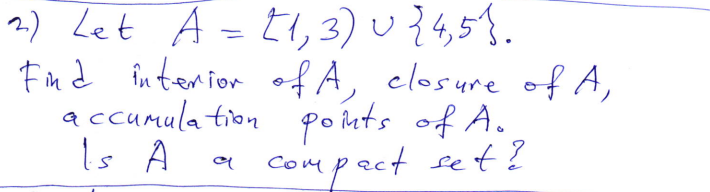 2) Let A = [1, 3) ∪ {4,5}.
Find interior of A, closure of A,
accumulation points of A.
Is A a compact set?